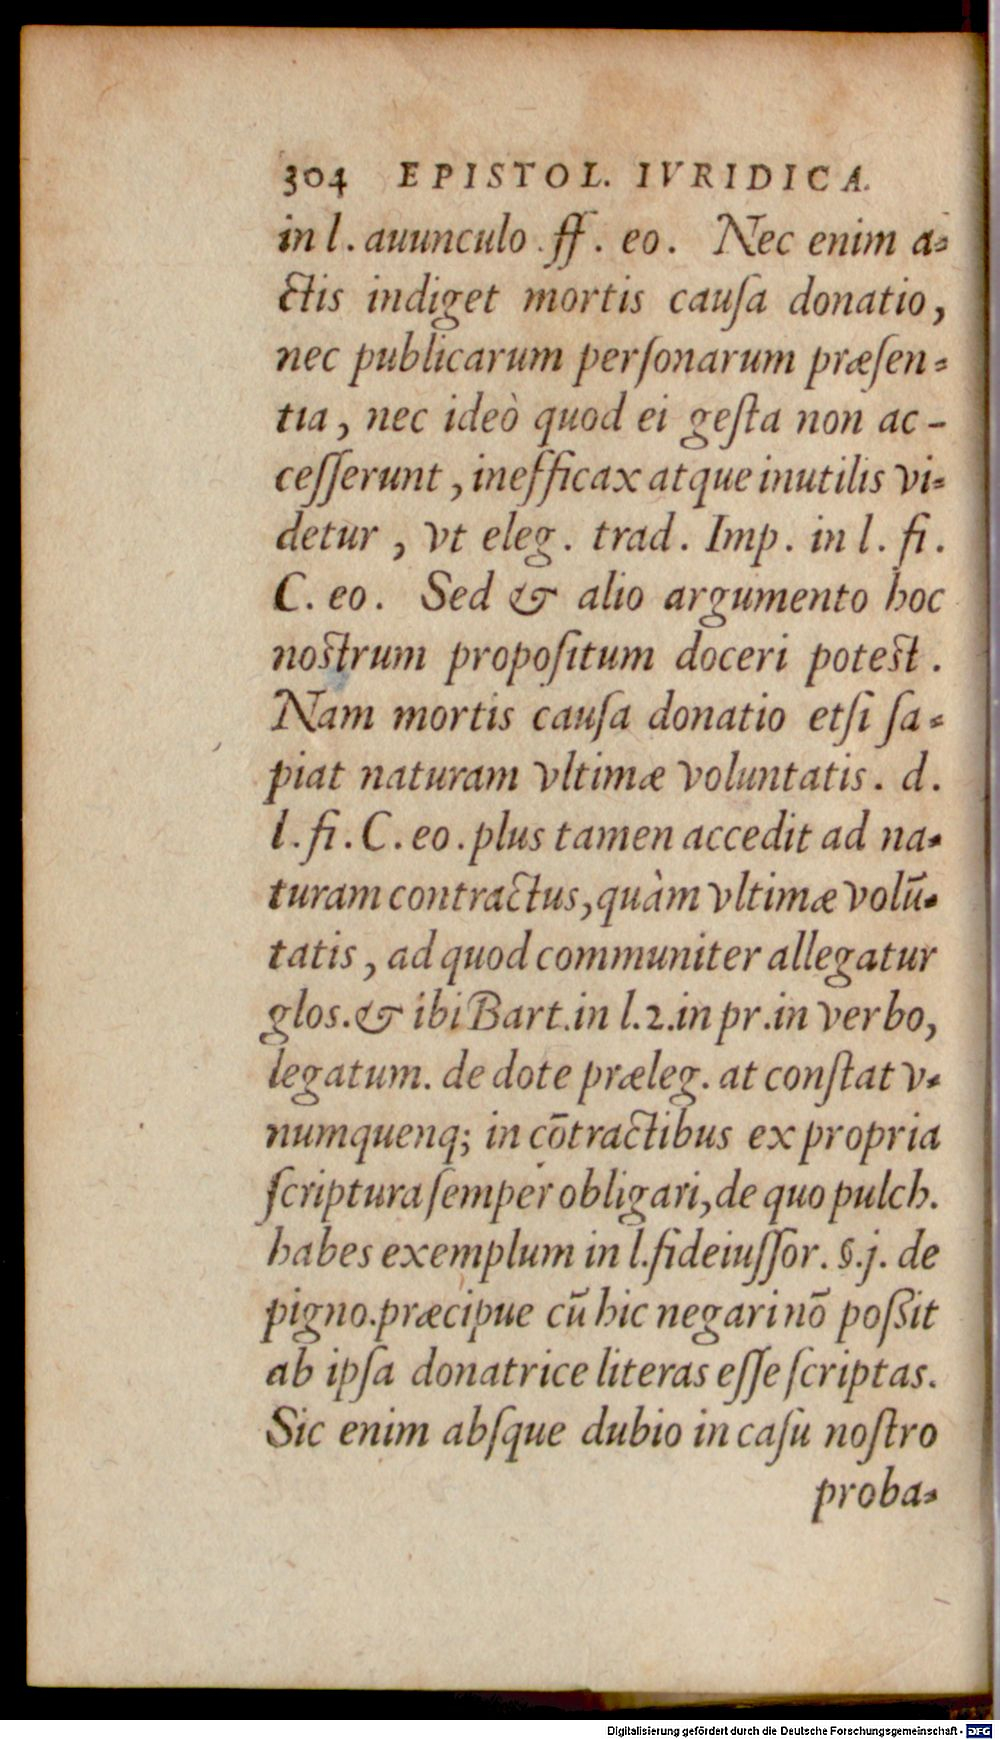 304 EPISTOL. IVRIDICA.
in l. auunculo . ff. eo. Nec enim a-
ctis indiget mortis cauſa donatio,
nec publicarum perſonarum præſen-
tia, nec ideò quod ei geſta non ac-
ceſſerunt, inefficax atque inutilis vi-
detur, vt eleg. trad. Imp. in l. fi.
C. eo. Sed & alio argumento hoc
nostrum propoſitum doceri potest.
Nam mortis cauſa donatio etſi ſa-
piat naturam vltimæ voluntatis. d.
l. fi. C. eo. plus tamen accedit ad na-
turam contractus, quàm vltimæ volū-
tatis, ad quod communiter allegatur
glos. & ibi Bart. in l. 2. in pr. in verbo,
legatum. de dote præleg. at conſtat v-
numquenq; in cōtractibus ex propria
ſcriptura ſemper obligari, de quo pulch.
habes exemplum in l. fideiuſſor. §. j. de
pigno. præcipue cū hic negari nō poſsit
ab ipſa donatrice literas eſſe ſcriptas.
Sic enim abſque dubio in caſu noſtro
proba-
Digitalisierung gefördert durch die Deutsche Forschungsgemeinschaft - DFG